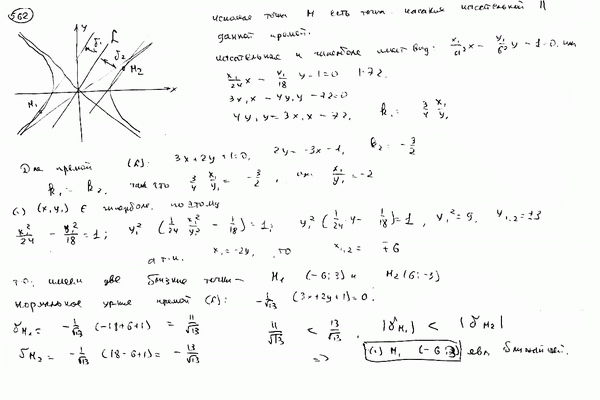 562
y
x
L
δ₁
δ₂
M₁
M₂
искомая точка М есть точка касания касательной ||
данной прямой.
касательная к гиперболе имеет вид: x₁/a² x - y₁/b² y - 1 = 0. или
x₁/24 x - y₁/18 y - 1 = 0 | · 72.
3x₁x - 4y₁y - 72 = 0
4y₁y = 3x₁x - 72, k₁ = 3/4 x₁/y₁
Для прямой (L): 3x + 2y + 1 = 0, 2y = -3x - 1, k₂ = -3/2
k₁ = k₂, так что 3/4 x₁/y₁ = -3/2, или x₁/y₁ = -2
(·) (x₁y₁) ∈ гиперболе, поэтому
x₁²/24 - y₁²/18 = 1; y₁² (1/24 x₁²/y₁² - 1/18) = 1; y₁² (1/24 · 4 - 1/18) = 1, y₁² = 9, y₁,₂ = ±3
а т.к. x₁ = -2y₁, то x₁,₂ = ∓6
т.о. имеем две точки - M₁ (-6; 3) и M₂ (6; -3)
нормальное ур-ние прямой (L): -1/√13 (3x + 2y + 1) = 0.
δM₁ = -1/√13 (-18 + 6 + 1) = 11/√13 11/√13 < 13/√13, |δM₁| < |δM₂|
δM₂ = -1/√13 (18 - 6 + 1) = -13/√13 => (·) M₁ (-6; 3) явл. ближайшей.